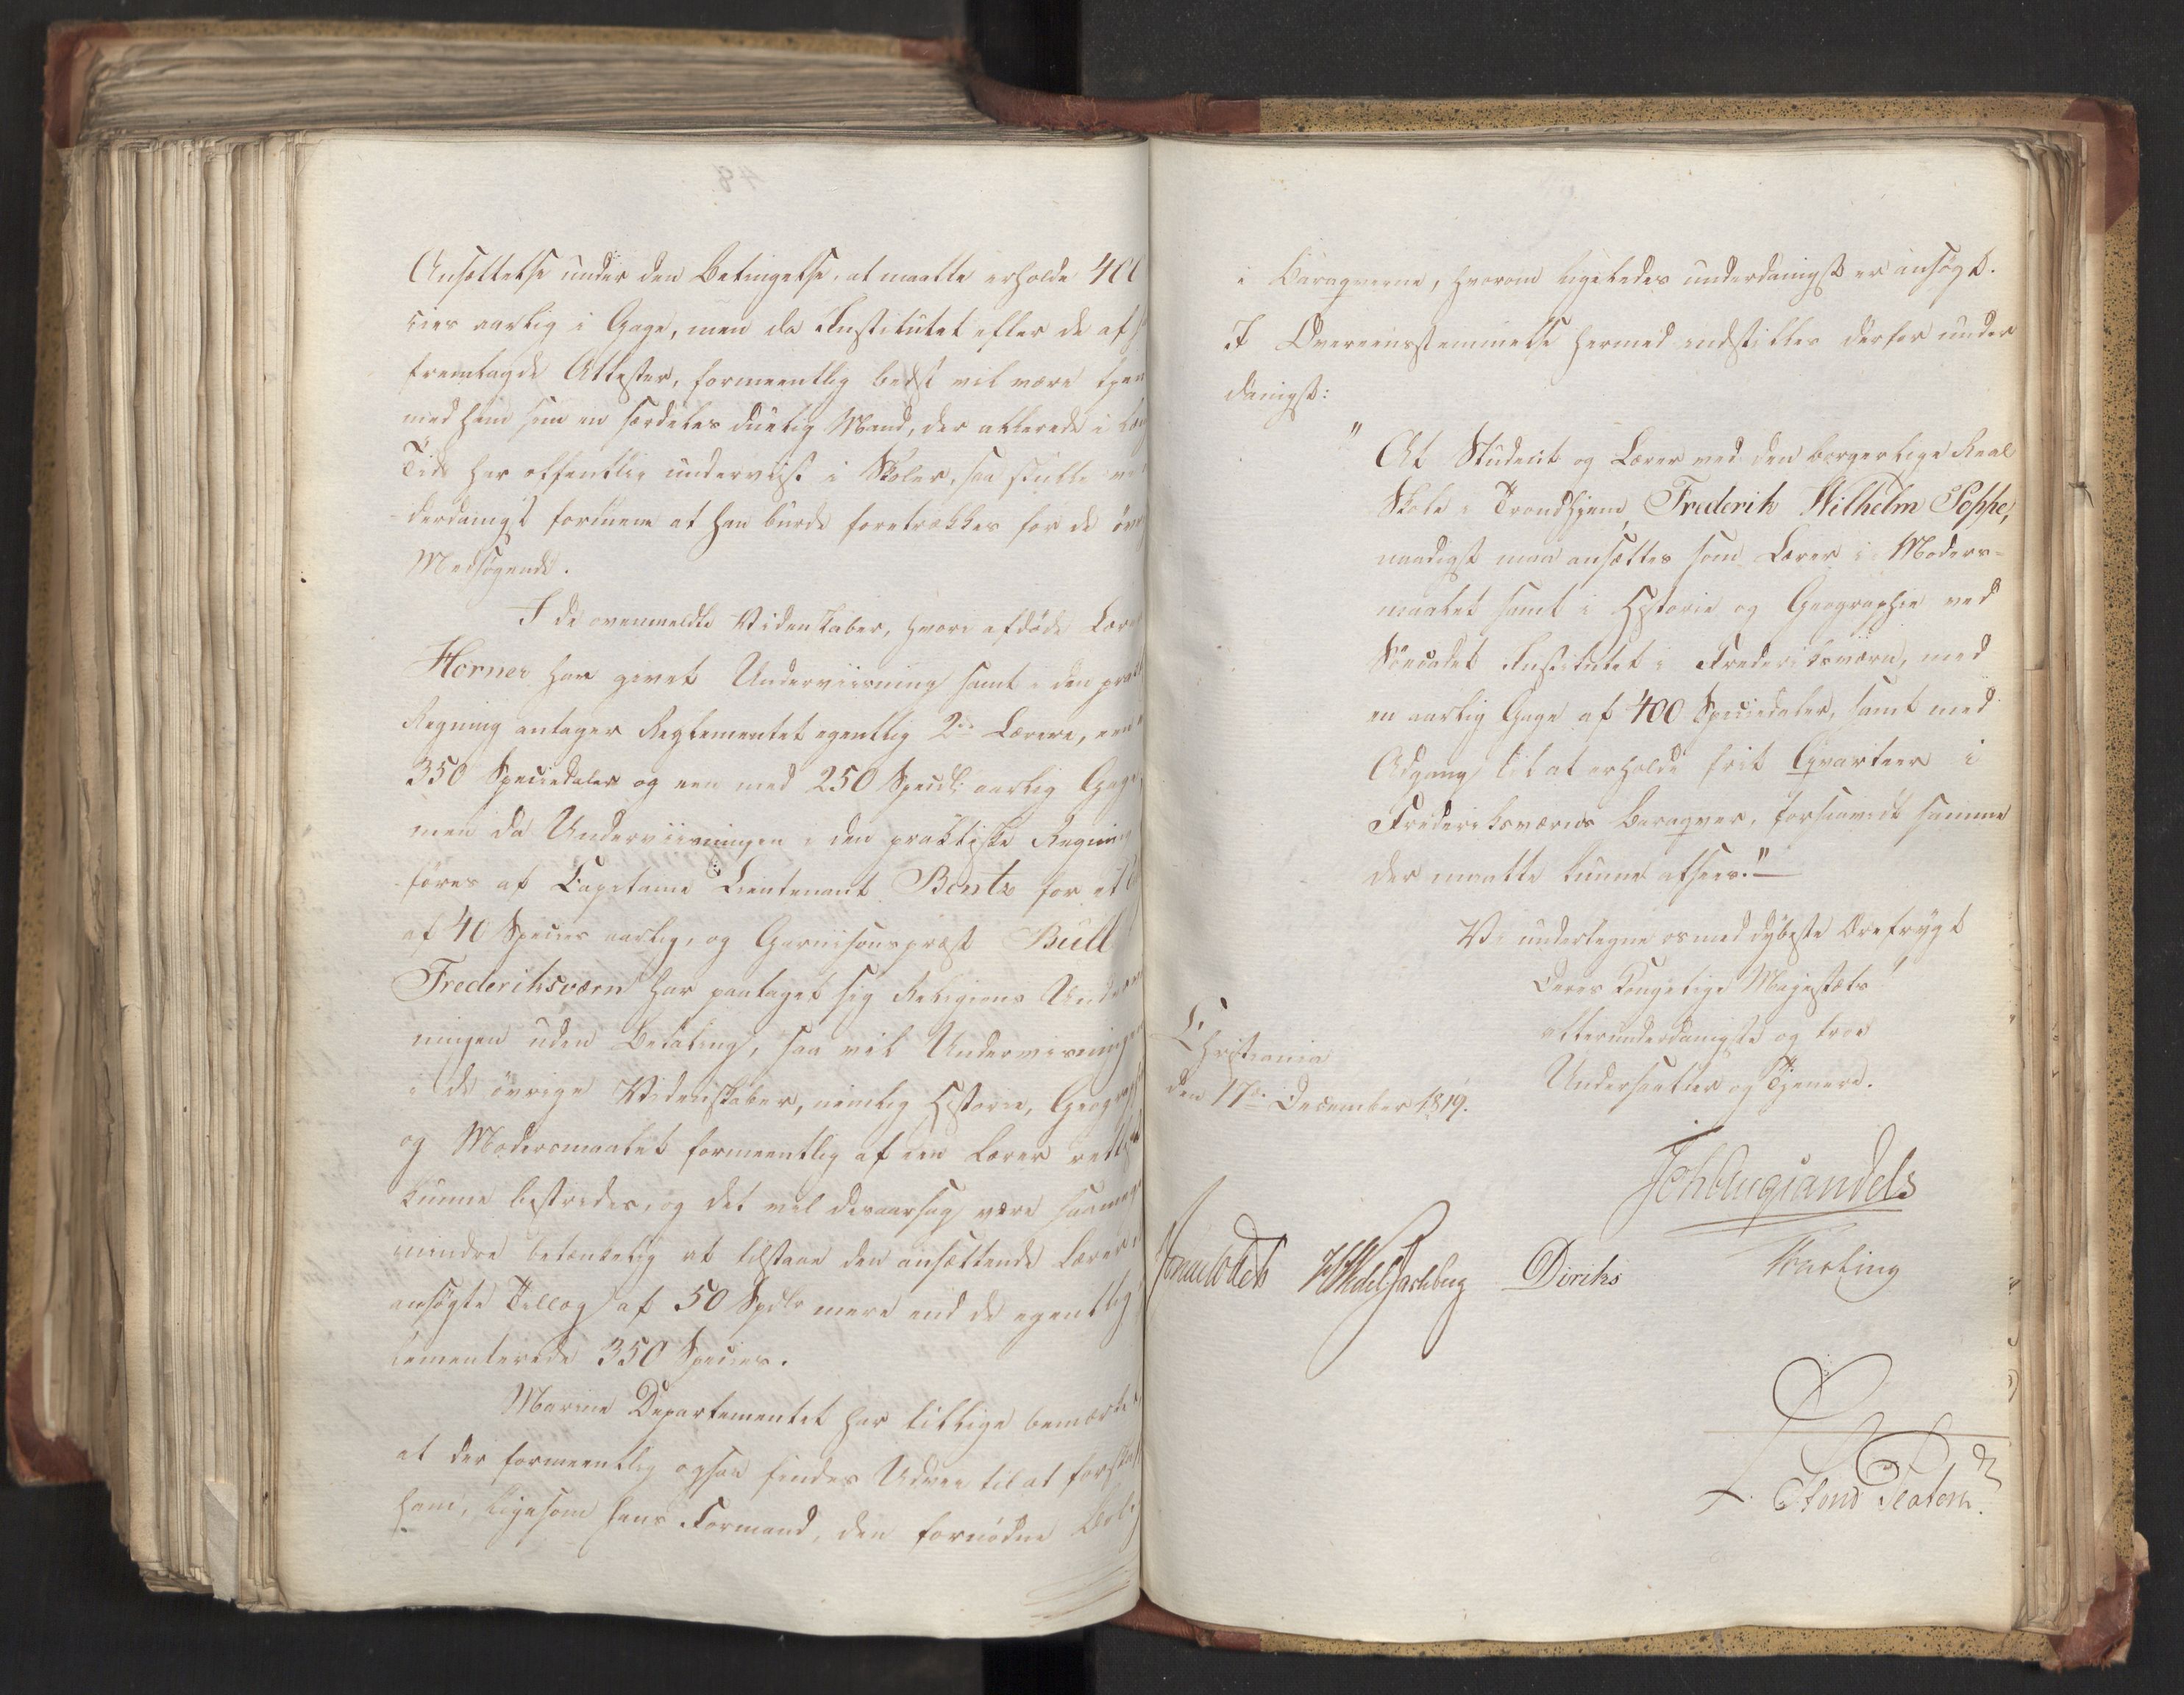 Ansættelse under den Betingelse, at maatte erholde 400
cies aarlig i Gage, men da Institutet efter de af
fremlagde Attester, formeentlig bedst vil være tjen
med ham som en særdeles duelig Mand, der allerede i
Tid har offentlig underviist i Skoler, saa skulle
derdanigst formene at han burde foretrækkes for de øv
Medsøgende.
I de ovenmeldte Videnskaber, hvori afdøde Lær
Horner har givet Underviisning samt i den pra
Regning antager Reglementet egentlig 2de Lærere, een
350 Speciedaler og een med 250 Specdl: aarlig Gage
men da Underviisningen i den praktiske Regning
føres af Capitaine Lieutenant Bentz for et
af 40 Species aarlig, og Garnisonspræst Bull
Frederiksværn har paataget sig Religions Under
ningen uden Betaling, saa vil Underviisningen
i de øvrige Videnskaber, nemlig Historie, Geogra
og Modersmaalet formeentlig af een Lærer
kunne bestrides, og det vil desaarsag være saameg
mindre betænkelig at tilstaae den ansættende Lærer
ansøgte Tillæg af 50 Spdlr mere end de egentlig
lementerede 350 Species.
Marine Departementet har tillige bemærket,
at der formeentlig ogsaa findes Udvei til at forska
ham, ligesom hans Formand, den fornødne
i Baraqverne, hvorom ligeledes underdanigst er ansøgt.
I Overeensstemmelse hermed indstilles derfor under
danigst:
" At Student og Lærer ved den borgerlige Real
Skole i Trondhjem, Frederik Wilhelm Poppe,
naadigst maa ansættes som Lærer i Moders-
maalet samt i Historie og Geographie ved
Søecadet Institutet i Frederiksværn, med
en aarlig Gage af 400 Speciedaler, samt med
Adgang til at erholde frit Qvarteer i
Frederiksværns Baraqver, forsaavidt samme
der maatte kunne afsees."
Vi undertegne os med dybeste Ærefrygt
Deres Kongelige Majestæts
allerunderdanigste og troe
Undersaatter og Tjenere.
Christiania
den 17de December 1819.
Joh Aug Sandels
Sommerfeldt HWedel Jarlsberg Diriks Fasting